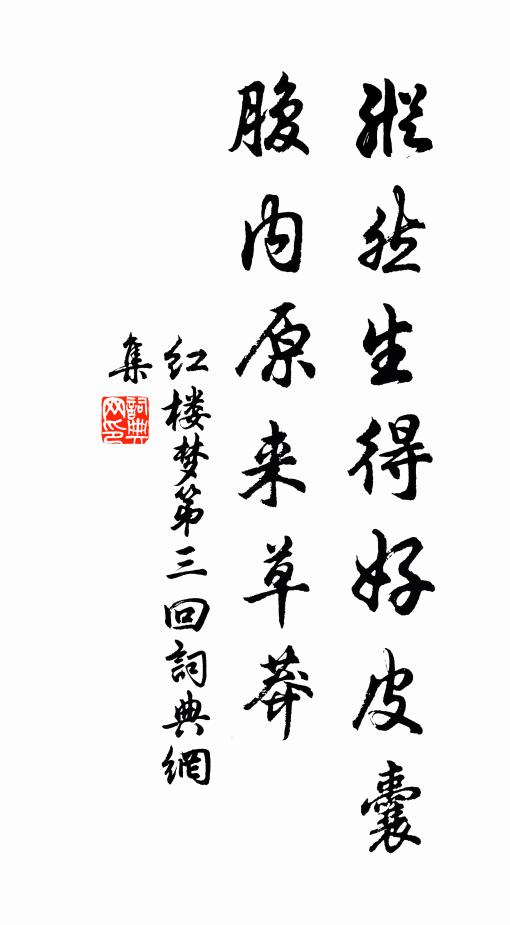 縱然生得好皮囊
腹内原来草莽
红楼梦第三回詞典網
集
詞典网印